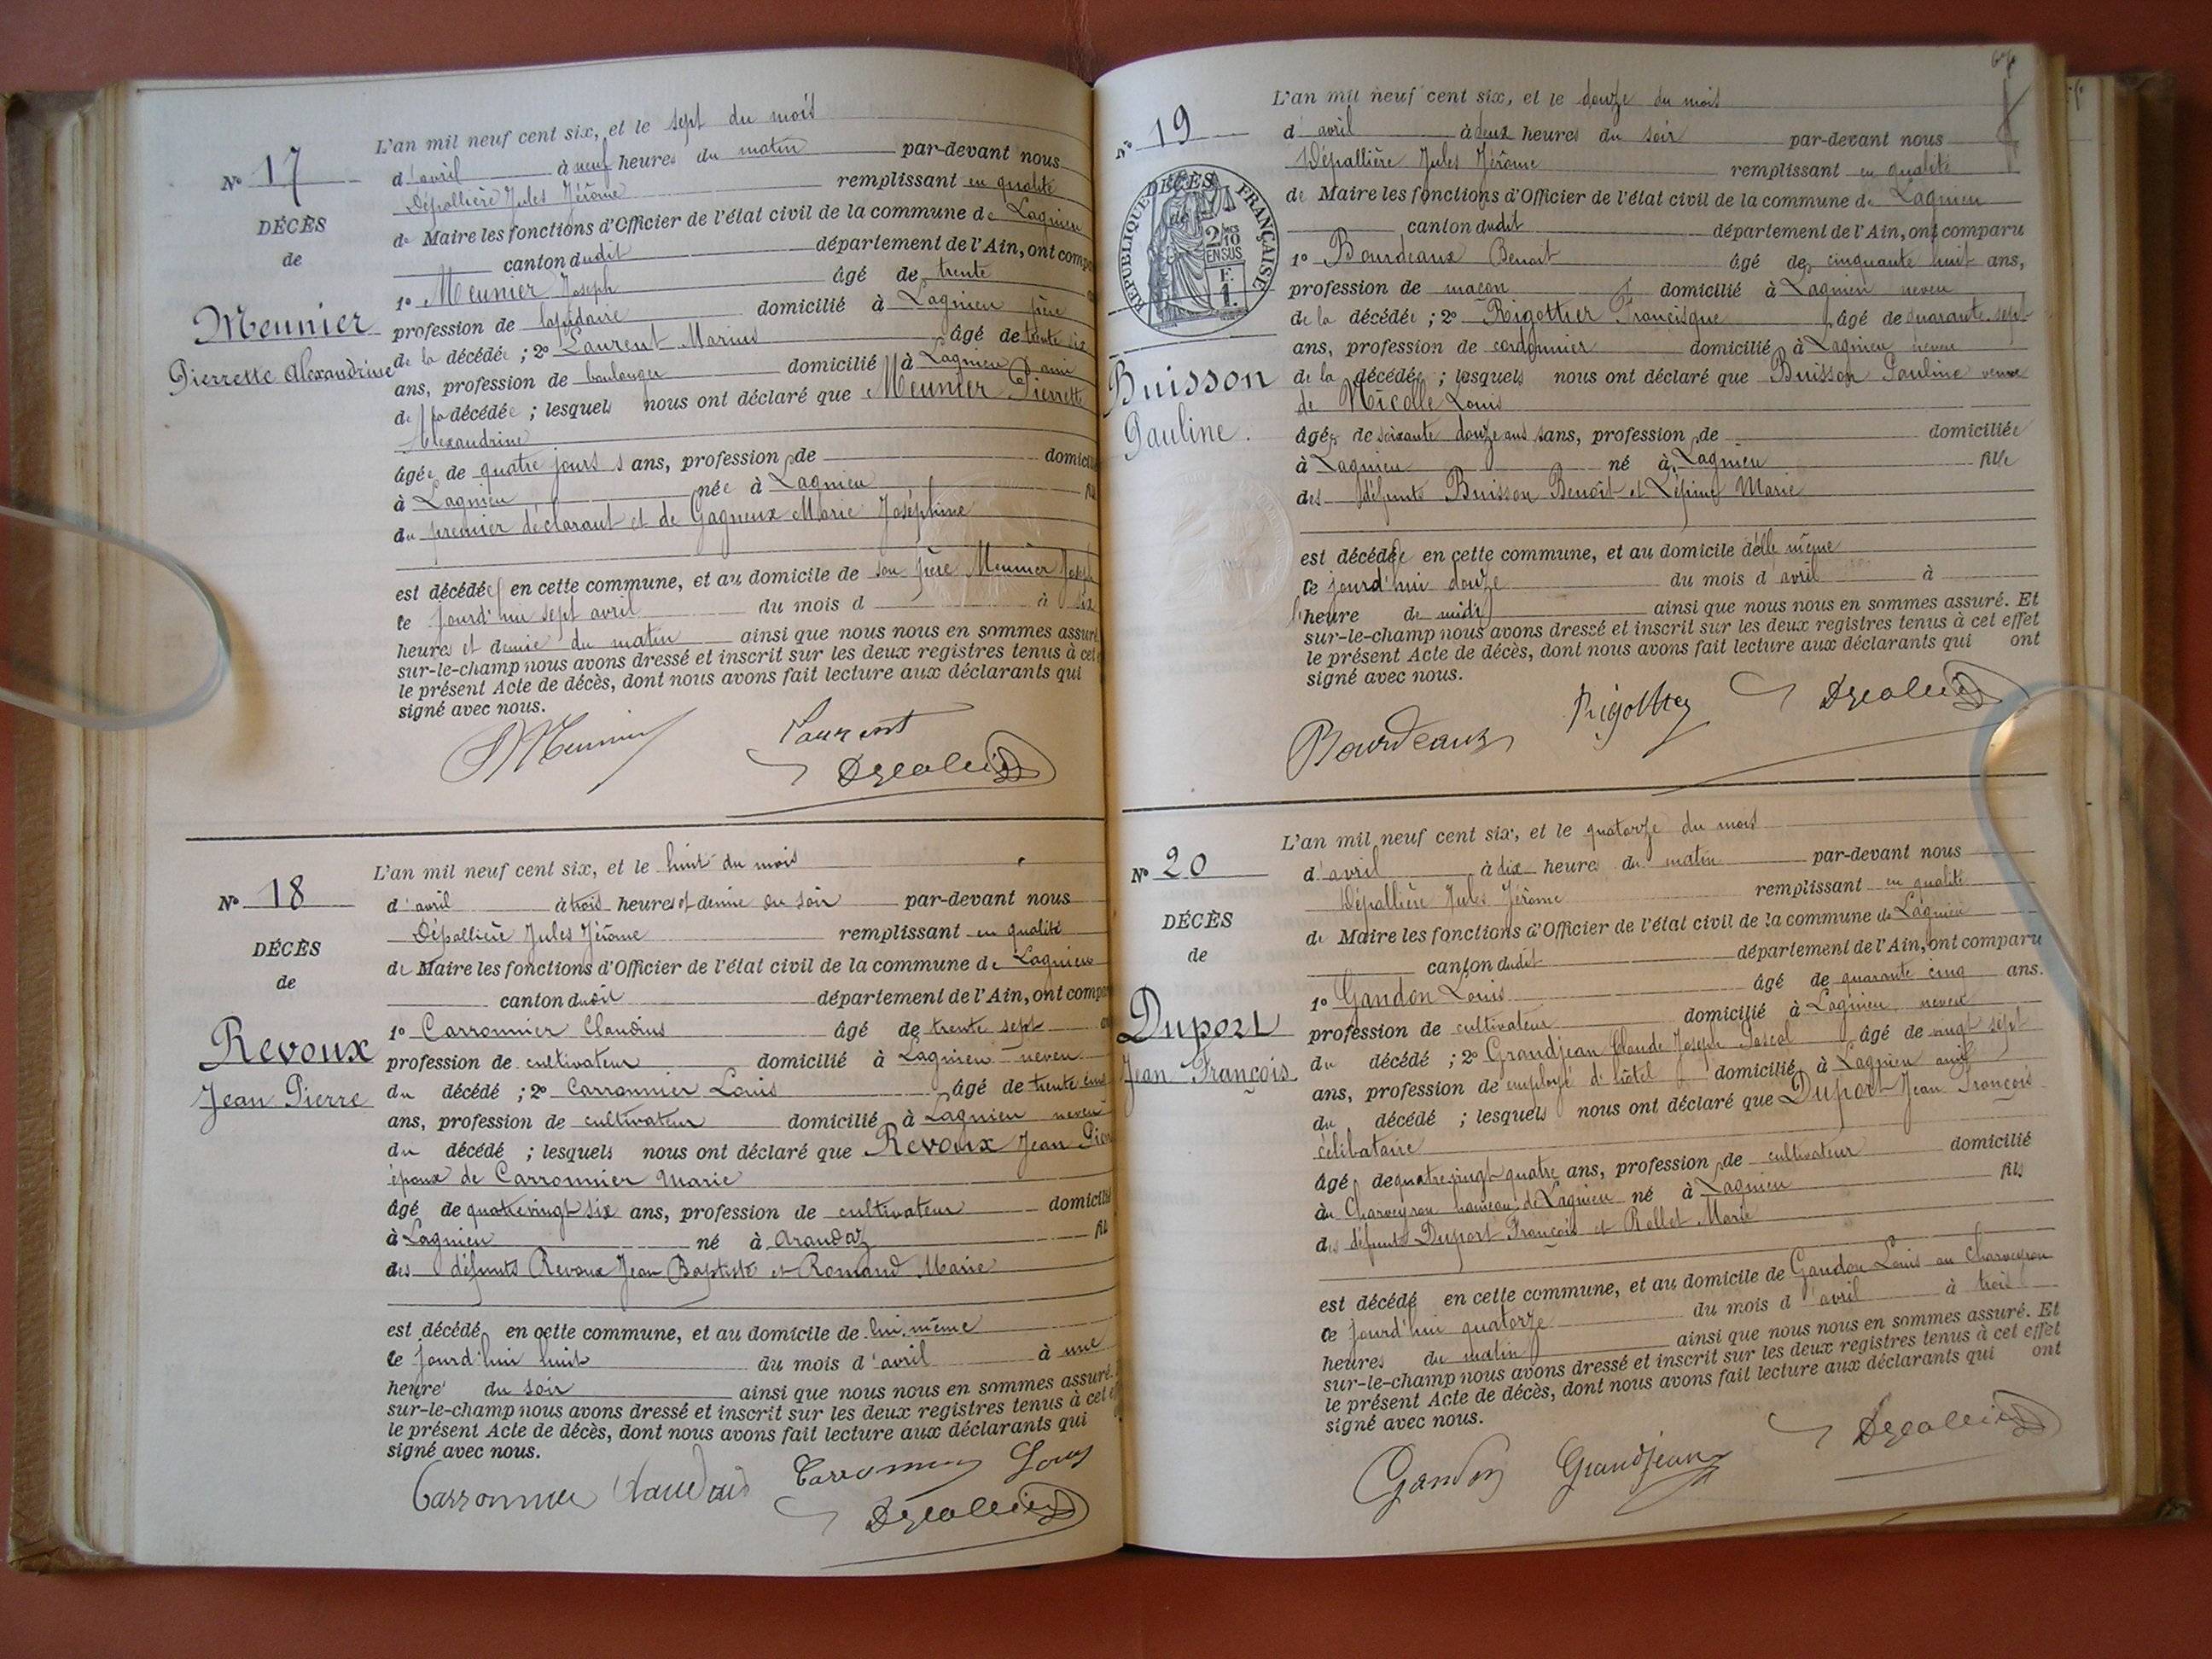 L'an mil neuf cent six, et le sept du mois
Nº 17
d'avril à neuf heures du matin par-devant nous
Dépallière Jules Jérôme remplissant en qualité
DÉCÈS
de Maire les fonctions d'Officier de l'état civil de la commune de Lagnieu
de
canton dudit département de l'Ain, ont compa
1º Meunier Joseph âgé de trente
Meunier
Pierrette Alexandrine
profession de lapidaire domicilié à Lagnieu père
de la décédée ; 2º Laurent Marius âgé de trente six
ans, profession de boulanger domicilié à Lagnieu ami
de la décédée ; lesquels nous ont déclaré que Meunier Pierrette
Alexandrine
âgée de quatre jours s ans, profession de domicil
à Lagnieu née à Lagnieu fil
du premier déclarant et de Gagneux Marie Joséphine
est décédée en cette commune, et au domicile de son père Meunier Joseph
le jourd'hui sept avril du mois d à six
heures et demie du matin ainsi que nous nous en sommes assuré
sur-le-champ nous avons dressé et inscrit sur les deux registres tenus à cet
le présent Acte de décès, dont nous avons fait lecture aux déclarants qui
signé avec nous.
Meunier Laurent
L'an mil neuf cent six, et le huit du mois
Nº 18
d'avril à trois heures et demie du soir par-devant nous
Dépallière Jules Jérôme remplissant en qualité
DÉCÈS
de Maire les fonctions d'Officier de l'état civil de la commune de Lagnieu
de
canton dudit département de l'Ain, ont compa
1º Carronnier Claudius âgé de trente sept
Revoux
Jean Pierre
profession de cultivateur domicilié à Lagnieu neveu
du décédé ; 2º Carronnier Louis âgé de trente cinq
ans, profession de cultivateur domicilié à Lagnieu neveu
du décédé ; lesquels nous ont déclaré que Revoux Jean Pierre
époux de Carronnier Marie
âgé de quatre vingt six ans, profession de cultivateur domicilié
à Lagnieu né à Arandaz fil
des défunts Revoux Jean Baptiste et Romand Marie
est décédé en cette commune, et au domicile de lui même
le jourd'hui huit du mois d'avril à une
heure du soir ainsi que nous nous en sommes assuré.
sur-le-champ nous avons dressé et inscrit sur les deux registres tenus à cet e
le présent Acte de décès, dont nous avons fait lecture aux déclarants qui
signé avec nous.
Carronnier Claudius Carronnier Louis
L'an mil neuf cent six, et le douze du mois
Nº 19
d'avril à deux heures du soir par-devant nous
Dépallière Jules Jérôme remplissant en qualité
DÉCÈS
de
RÉPUBLIQUE FRANÇAISE
2/10 EN SUS
F. 1.
de Maire les fonctions d'Officier de l'état civil de la commune de Lagnieu
canton dudit département de l'Ain, ont comparu
1º Bourdeaux Benoit âgé de cinquante huit ans,
profession de maçon domicilié à Lagnieu neveu
de la décédée ; 2º Rigottier Francisque âgé de quarante sept
ans, profession de cordonnier domicilié à Lagnieu neveu
Buisson
Pauline.
de la décédée ; lesquels nous ont déclaré que Buisson Pauline veuve
de Nicolle Louis
âgée de soixante douze ans sans, profession de domiciliée
à Lagnieu né à Lagnieu fille
des défunts Buisson Benoît et Lépine Marie
est décédée en cette commune, et au domicile d'elle même
le jourd'hui douze du mois d'avril à
l'heure de midi ainsi que nous nous en sommes assuré. Et
sur-le-champ nous avons dressé et inscrit sur les deux registres tenus à cet effet
le présent Acte de décès, dont nous avons fait lecture aux déclarants qui ont
signé avec nous.
Bourdeaux Rigottier
L'an mil neuf cent six, et le quatorze du mois
Nº 20
d'avril à dix heures du matin par-devant nous
Dépallière Jules Jérôme remplissant en qualité
DÉCÈS
de Maire les fonctions d'Officier de l'état civil de la commune de Lagnieu
de
canton dudit département de l'Ain, ont comparu
1º Gandon Louis âgé de quarante cinq ans.
Duport
Jean François
profession de cultivateur domicilié à Lagnieu neveu
du décédé ; 2º Grandjean Claude Joseph Pascal âgé de vingt sept
ans, profession de employé d'hôtel domicilié à Lagnieu ami
du décédé ; lesquels nous ont déclaré que Duport Jean François
célibataire
âgé de quatre vingt quatre ans, profession de cultivateur domicilié
au Charveyron hameau de Lagnieu né à Lagnieu fils
des défunts Duport François et Rollet Marie
est décédé en cette commune, et au domicile de Gandon Louis au Charveyron
ce jourd'hui quatorze du mois d'avril à trois
heures du matin ainsi que nous nous en sommes assuré. Et
sur-le-champ nous avons dressé et inscrit sur les deux registres tenus à cet effet
le présent Acte de décès, dont nous avons fait lecture aux déclarants qui ont
signé avec nous.
Gandon Grandjean